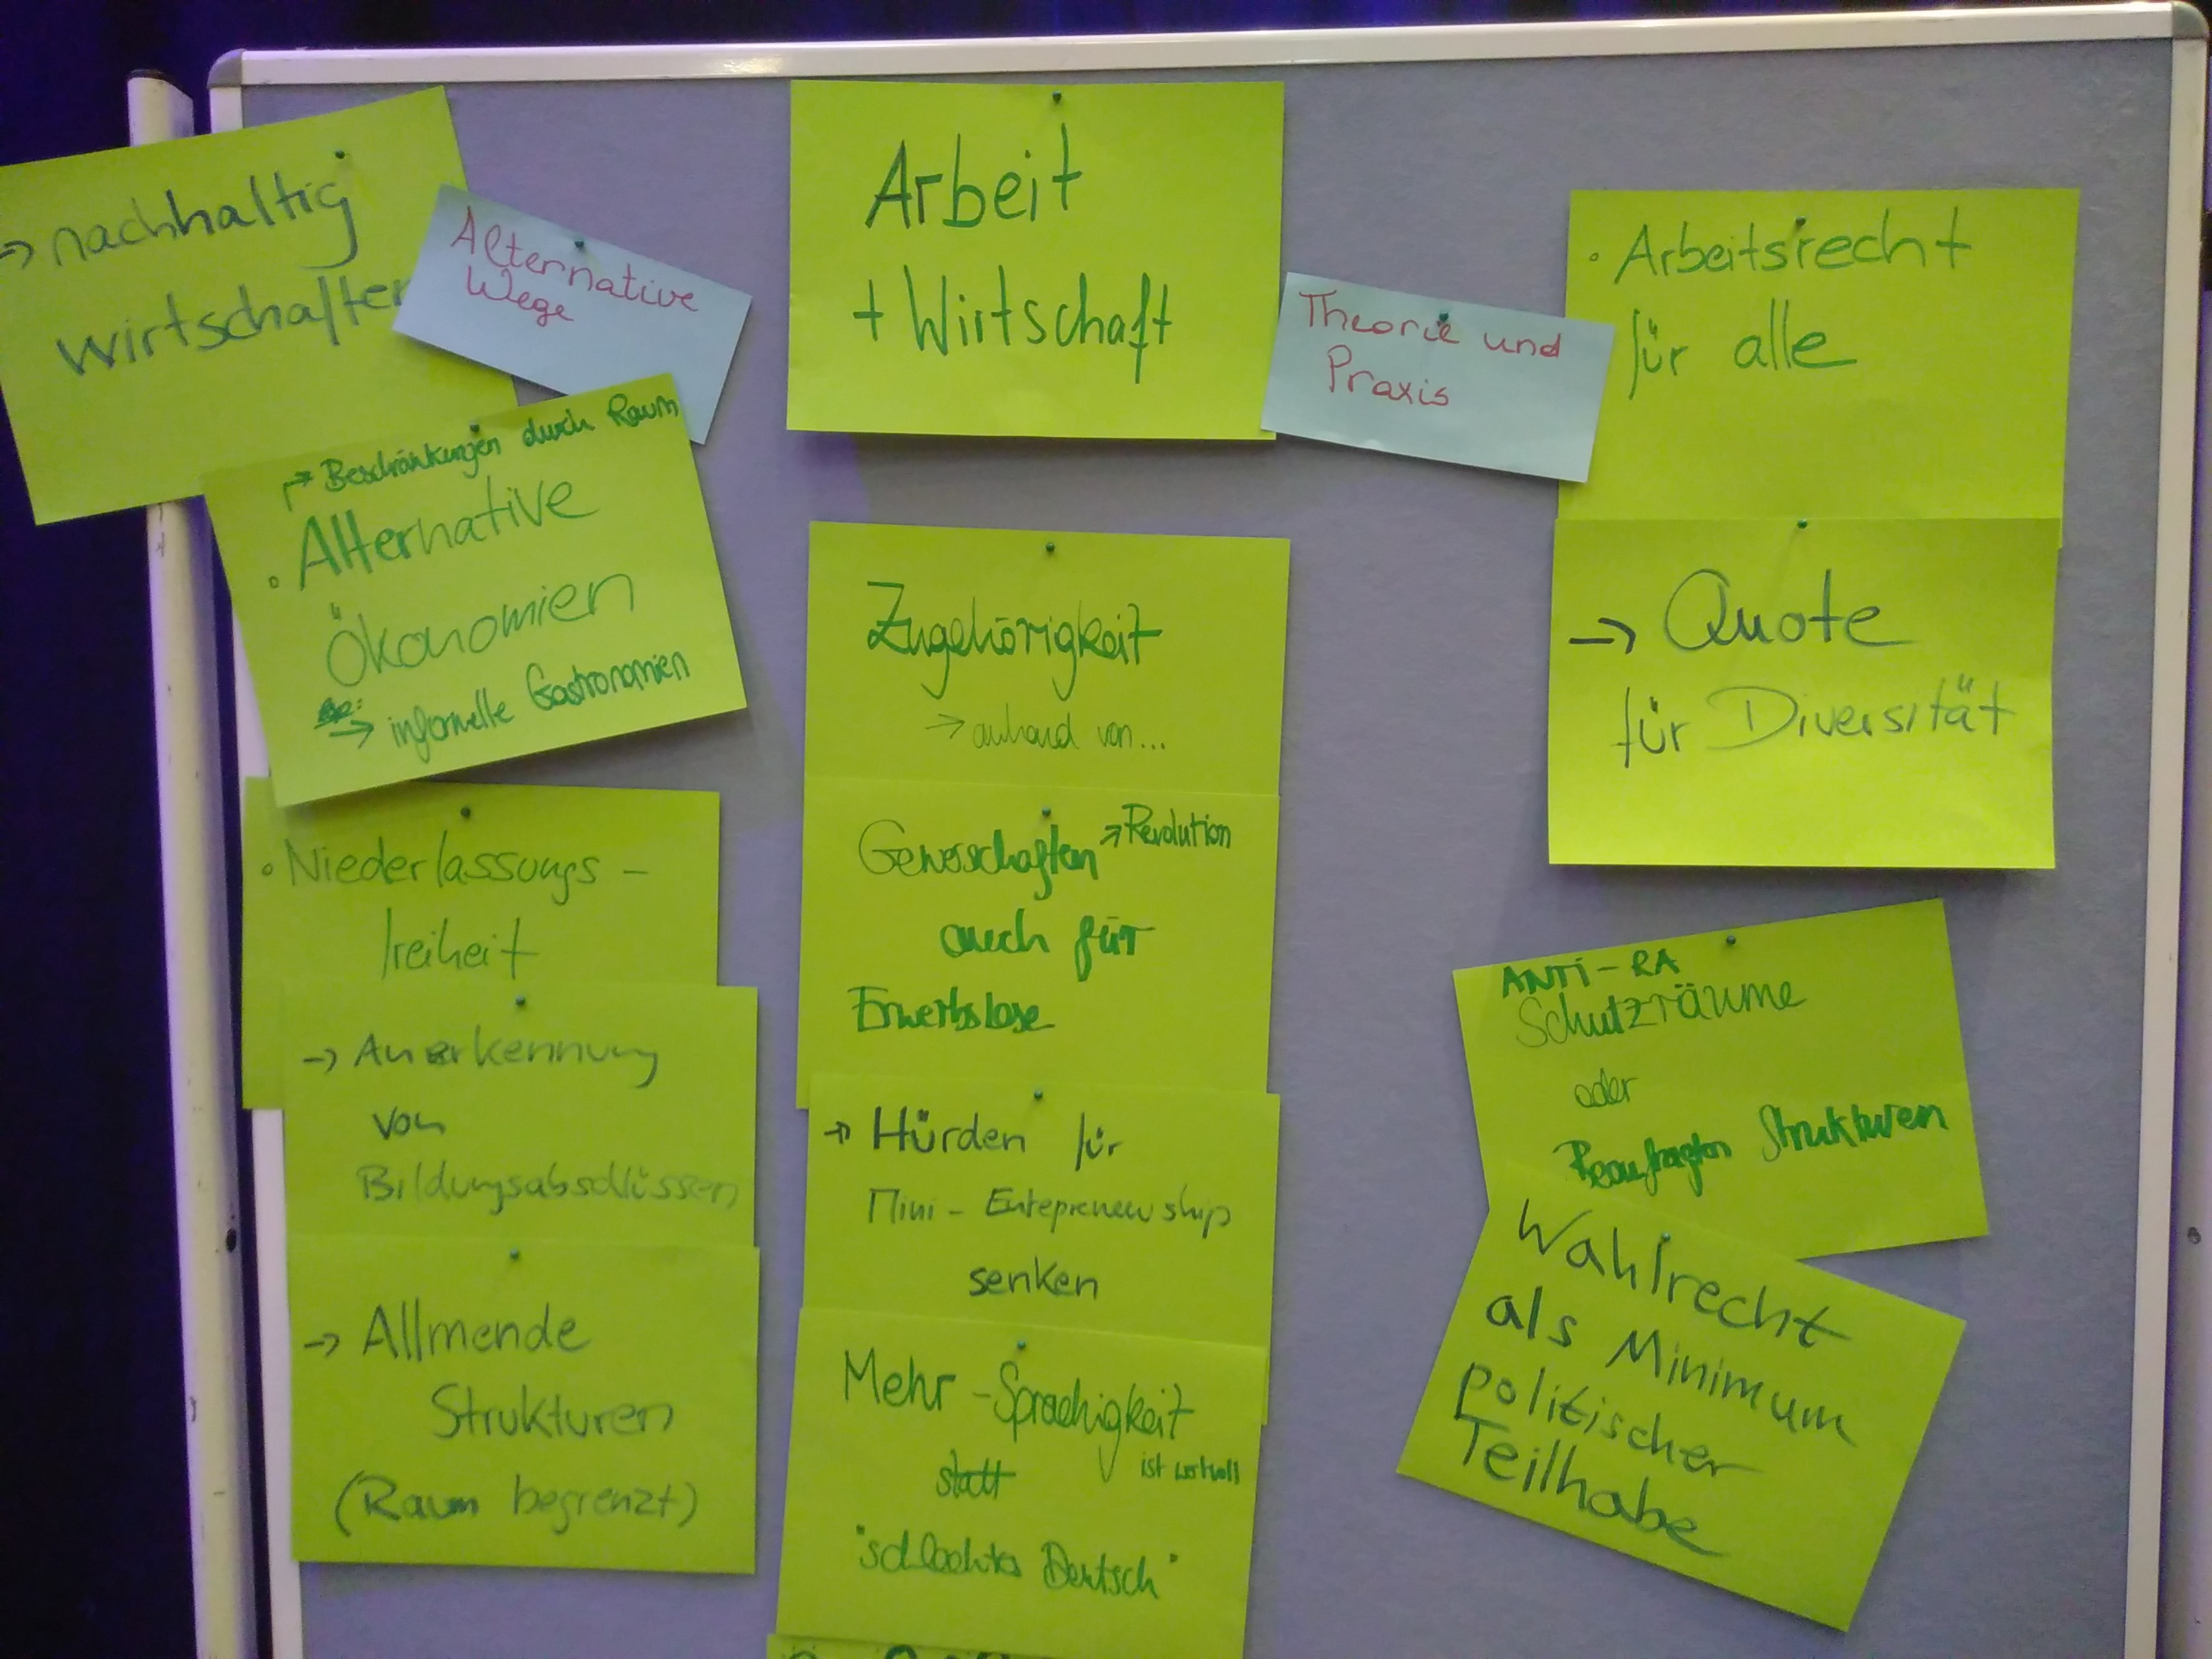 → nachhaltig
wirtschaften
Alternative
Wege
↱ Beschränkungen durch Raum
• Alternative
Ökonomien
→ informelle Gastronomien
• Niederlassungs-
freiheit
→ Anerkennung
von
Bildungsabschlüssen
→ Allmende
Strukturen
(Raum begrenzt)
Arbeit
+ Wirtschaft
Zugehörigkeit
→ anhand von...
→ Revolution
auch für
Erwerbslose
→ Hürden für
Mini - Entepreneurship
senken
Mehr - Sprachigkeit
statt ist wertvoll
"schlechtes Deutsch"
Theorie und
Praxis
• Arbeitsrecht
für alle
→ Quote
für Diversität
ANTI - RA
Schutzräume
oder
Beauftragten Strukturen
Wahlrecht
als Minimum
politischer
Teilhabe